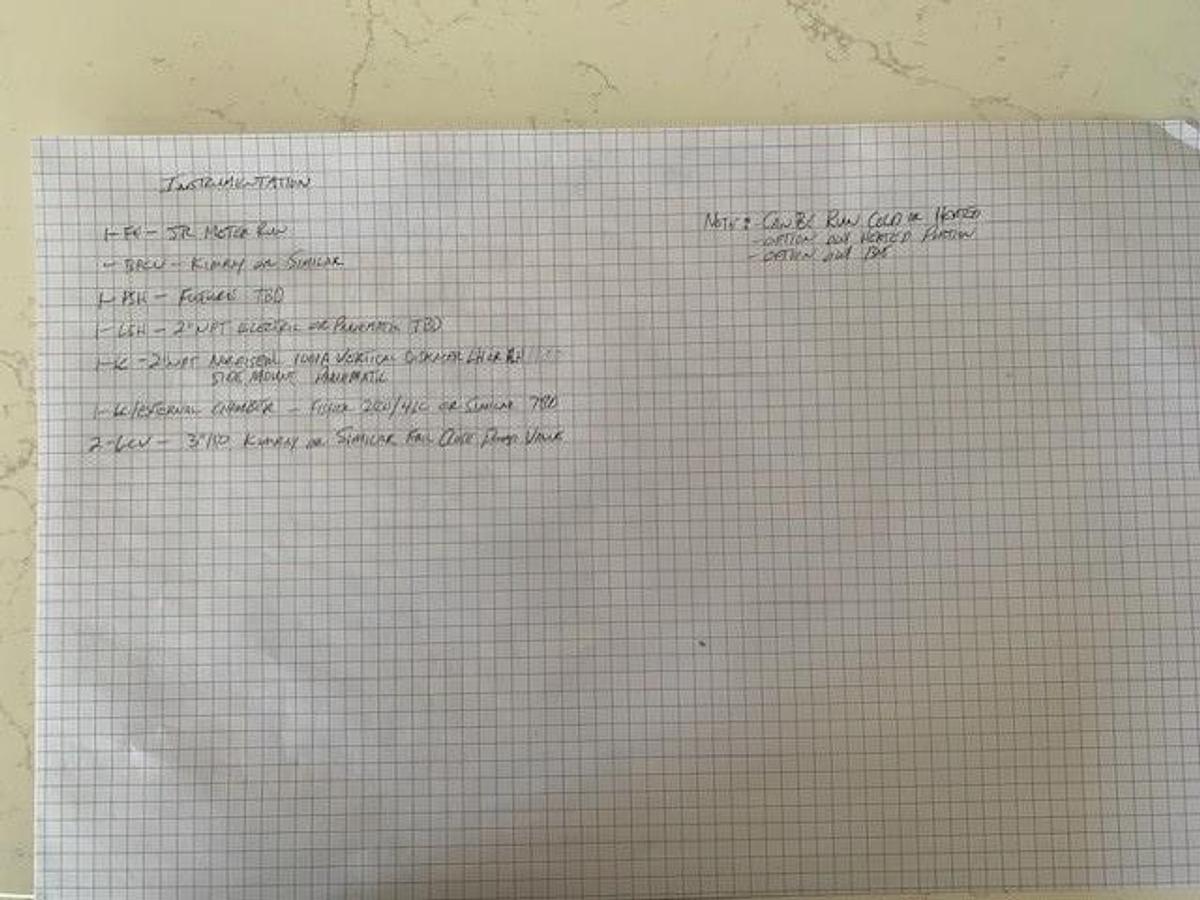 INSTRUMENTATION
1- FE - JR METER RUN
- BPCV - KIMRAY OR SIMILAR
1- PSH - FUTURE TBD
1- LSH - 2" NPT ELECTRIC OR PNEUMATIC TBD
1- LC - 2" NPT NORRISEAL 1001A VERTICAL DISPLACER LH OR RH
SIDE MOUNT PNEUMATIC
1- LC/EXTERNAL CHAMBER - FISHER OR SIMILAR TBD
2- LCV - 3"150 KIMRAY OR SIMILAR FAIL CLOSE DUMP VALVE
NOTE: - CAN BE RUN COLD OR HEATED
- OPTION OUT HEATED PORTION
- OPTION OUT